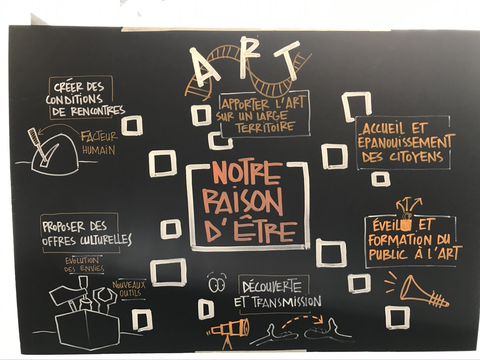 ART
CRÉER DES
CONDITIONS
DE RENCONTRES
FACTEUR
HUMAIN
APPORTER L'ART
SUR UN LARGE
TERRITOIRE
ACCUEIL ET
ÉPANOUISSEMENT
DES CITOYENS
NOTRE
RAISON
D'ÊTRE
PROPOSER DES
OFFRES CULTURELLES
EVOLUTION
DES ENVIES
NOUVEAUX
OUTILS
DÉCOUVERTE
ET TRANSMISSION
ÉVEIL ET
FORMATION DU
PUBLIC À L'ART